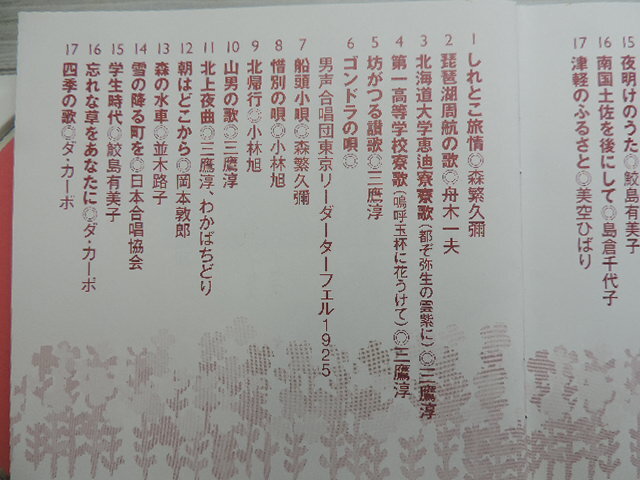 15 夜明けのうた◎鮫島有美子
16 南国土佐を後にして◎島倉千代子
17 津軽のふるさと◎美空ひばり
1 しれとこ旅情◎森繁久彌
2 琵琶湖周航の歌◎舟木一夫
3 北海道大学恵迪寮寮歌(都ぞ弥生の雲紫に)◎三鷹淳
4 第一高等学校寮歌(嗚呼玉杯に花うけて)◎三鷹淳
5 坊がつる讃歌◎三鷹淳
6 ゴンドラの唄◎
男声合唱団東京リーダーターフェル1925
7 船頭小唄◎森繁久彌
8 惜別の唄◎小林旭
9 北帰行◎小林旭
10 山男の歌◎三鷹淳
11 北上夜曲◎三鷹淳、わかばちどり
12 朝はどこから◎岡本敦郎
13 森の水車◎並木路子
14 雪の降る町を◎日本合唱協会
15 学生時代◎鮫島有美子
16 忘れな草をあなたに◎ダ・カーポ
17 四季の歌◎ダ・カーポ